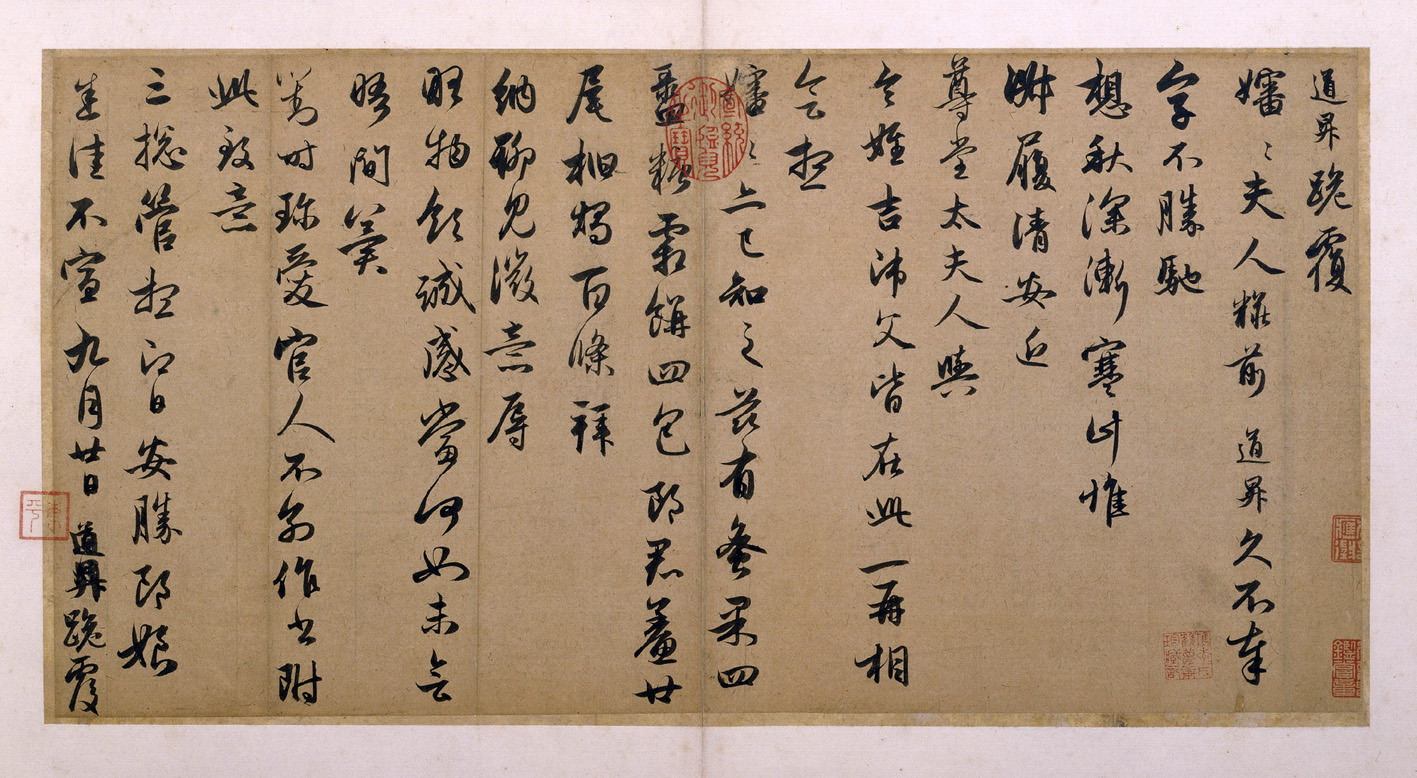 道昇跪覆
嬸嬸夫人糚前道昇久不奉
字不勝馳
想秋深漸寒計惟
淑履清安近
尊堂太夫人與
令姪吉沛父皆在此一再相
會想
嬸嬸亦已知之茲有蜜果四
盝糖霜餅四包郎君鯗廿
尾桕燭百條拜
納聊見微意辱
略物領誠感當何如未會
晤間冀
對時珍愛官人不別作書附
此致意
三總管想即日安勝郎娘
悉佳不宣九月廿日道昇跪覆